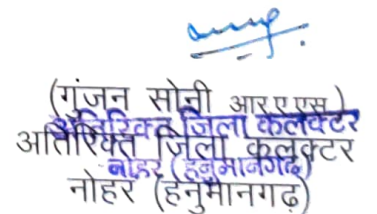 (गुंजन सोनी आर.ए.एस.)
अतिरिक्त जिला कलक्टर
अतिरिक्त जिला कलक्टर
नोहर (हनुमानगढ़)
नोहर (हनुमानगढ़)